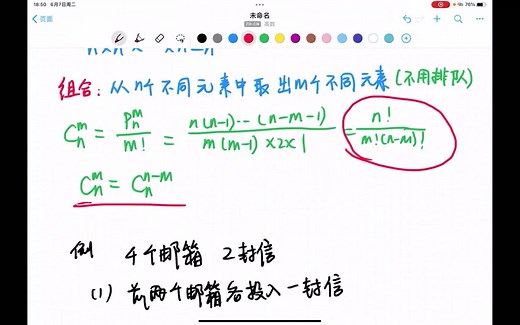 18:50 6月7日周二
未命名
76%
页面
组合: 从n个不同元素中取出m个不同元素(不用排队)
C_n^m = P_n^m / m! = n(n-1)··(n-m-1) / m(m-1)×2×1 = n! / m!(n-m)!
C_n^m = C_n^{n-m}
例 4个邮箱 2封信
(1) 前两个邮箱各投入一封信